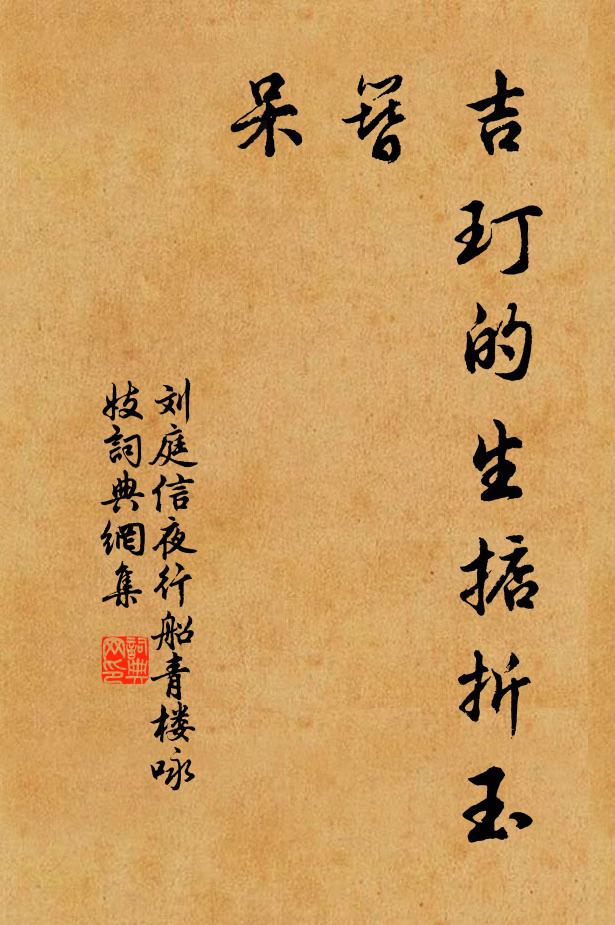 吉玎的生掂折玉
簪
呆
刘庭信夜行船青楼咏
妓詞典網集
詞典网印